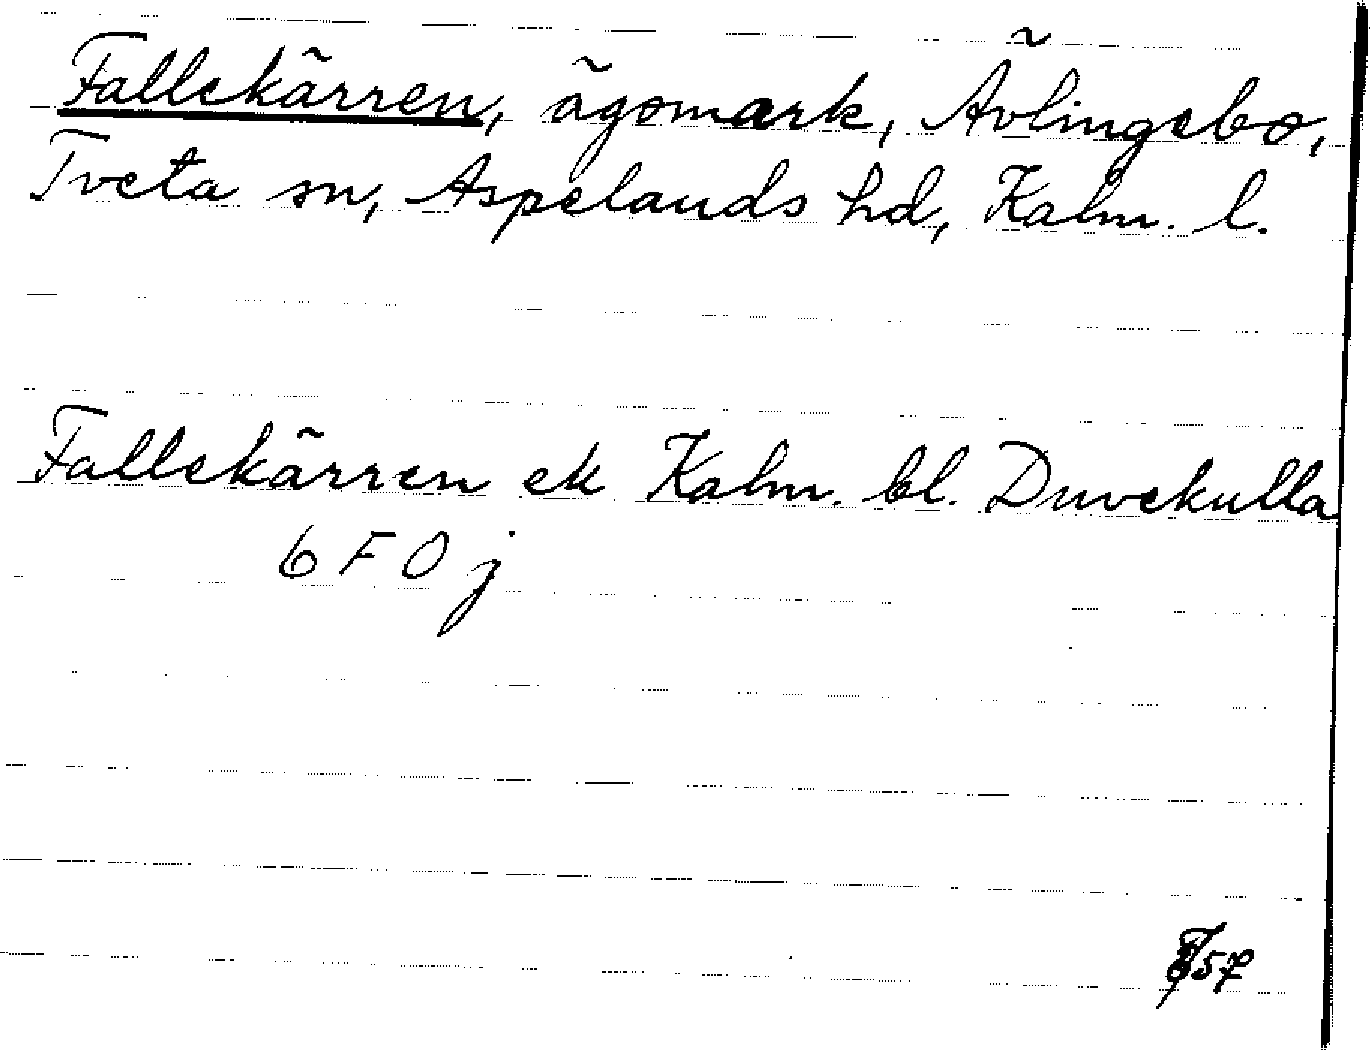 Fallekärren, ägomark, Ävlingebo,
Tveta sn, Aspelands hd, Kalm. l.
Fallekärren ek Kalm. bl. Duvekulla
6 F 0 j
57